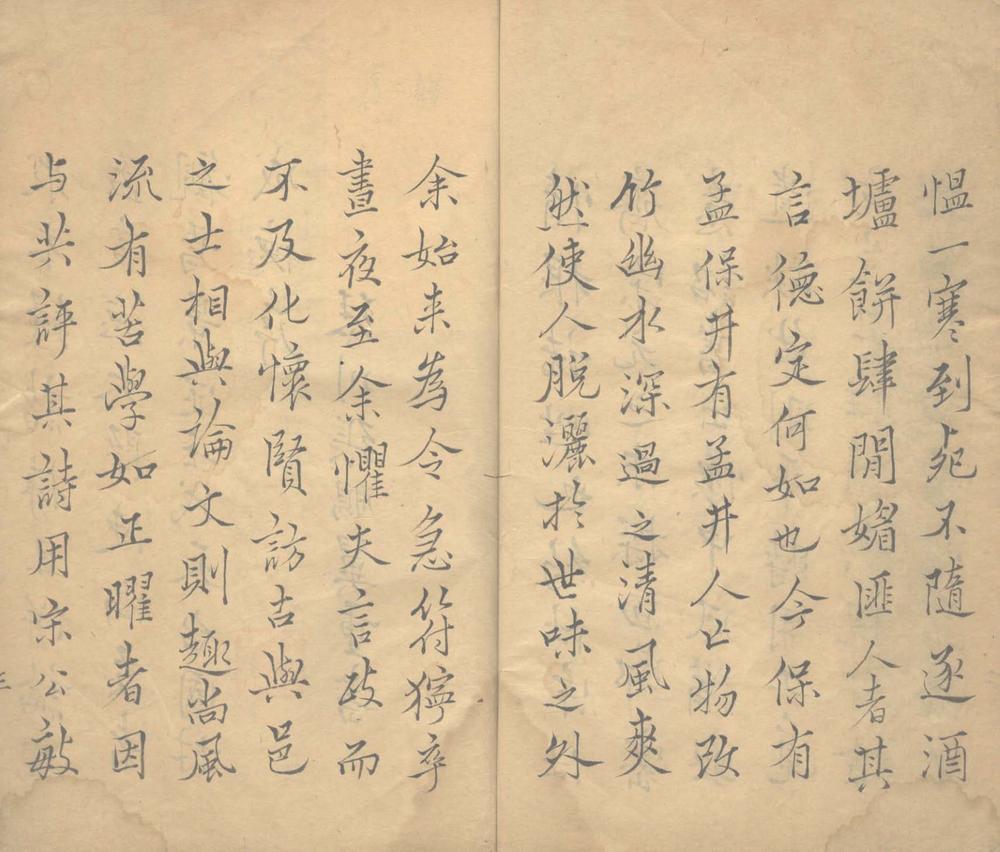 愠一寒到死不隨逐酒
壚餅肆閒媚匪人者其
言德定何如也今保有
孟保井有孟井人亡物改
竹幽水深過之清風爽
然使人脱灑於世味之外
余始来為令急符獰卒
晝夜至余懼夫言政而
不及化懷賢訪古與邑
之士相與論文則趣尚風
流有苦學如正曜者因
与共評其詩用宋公敏